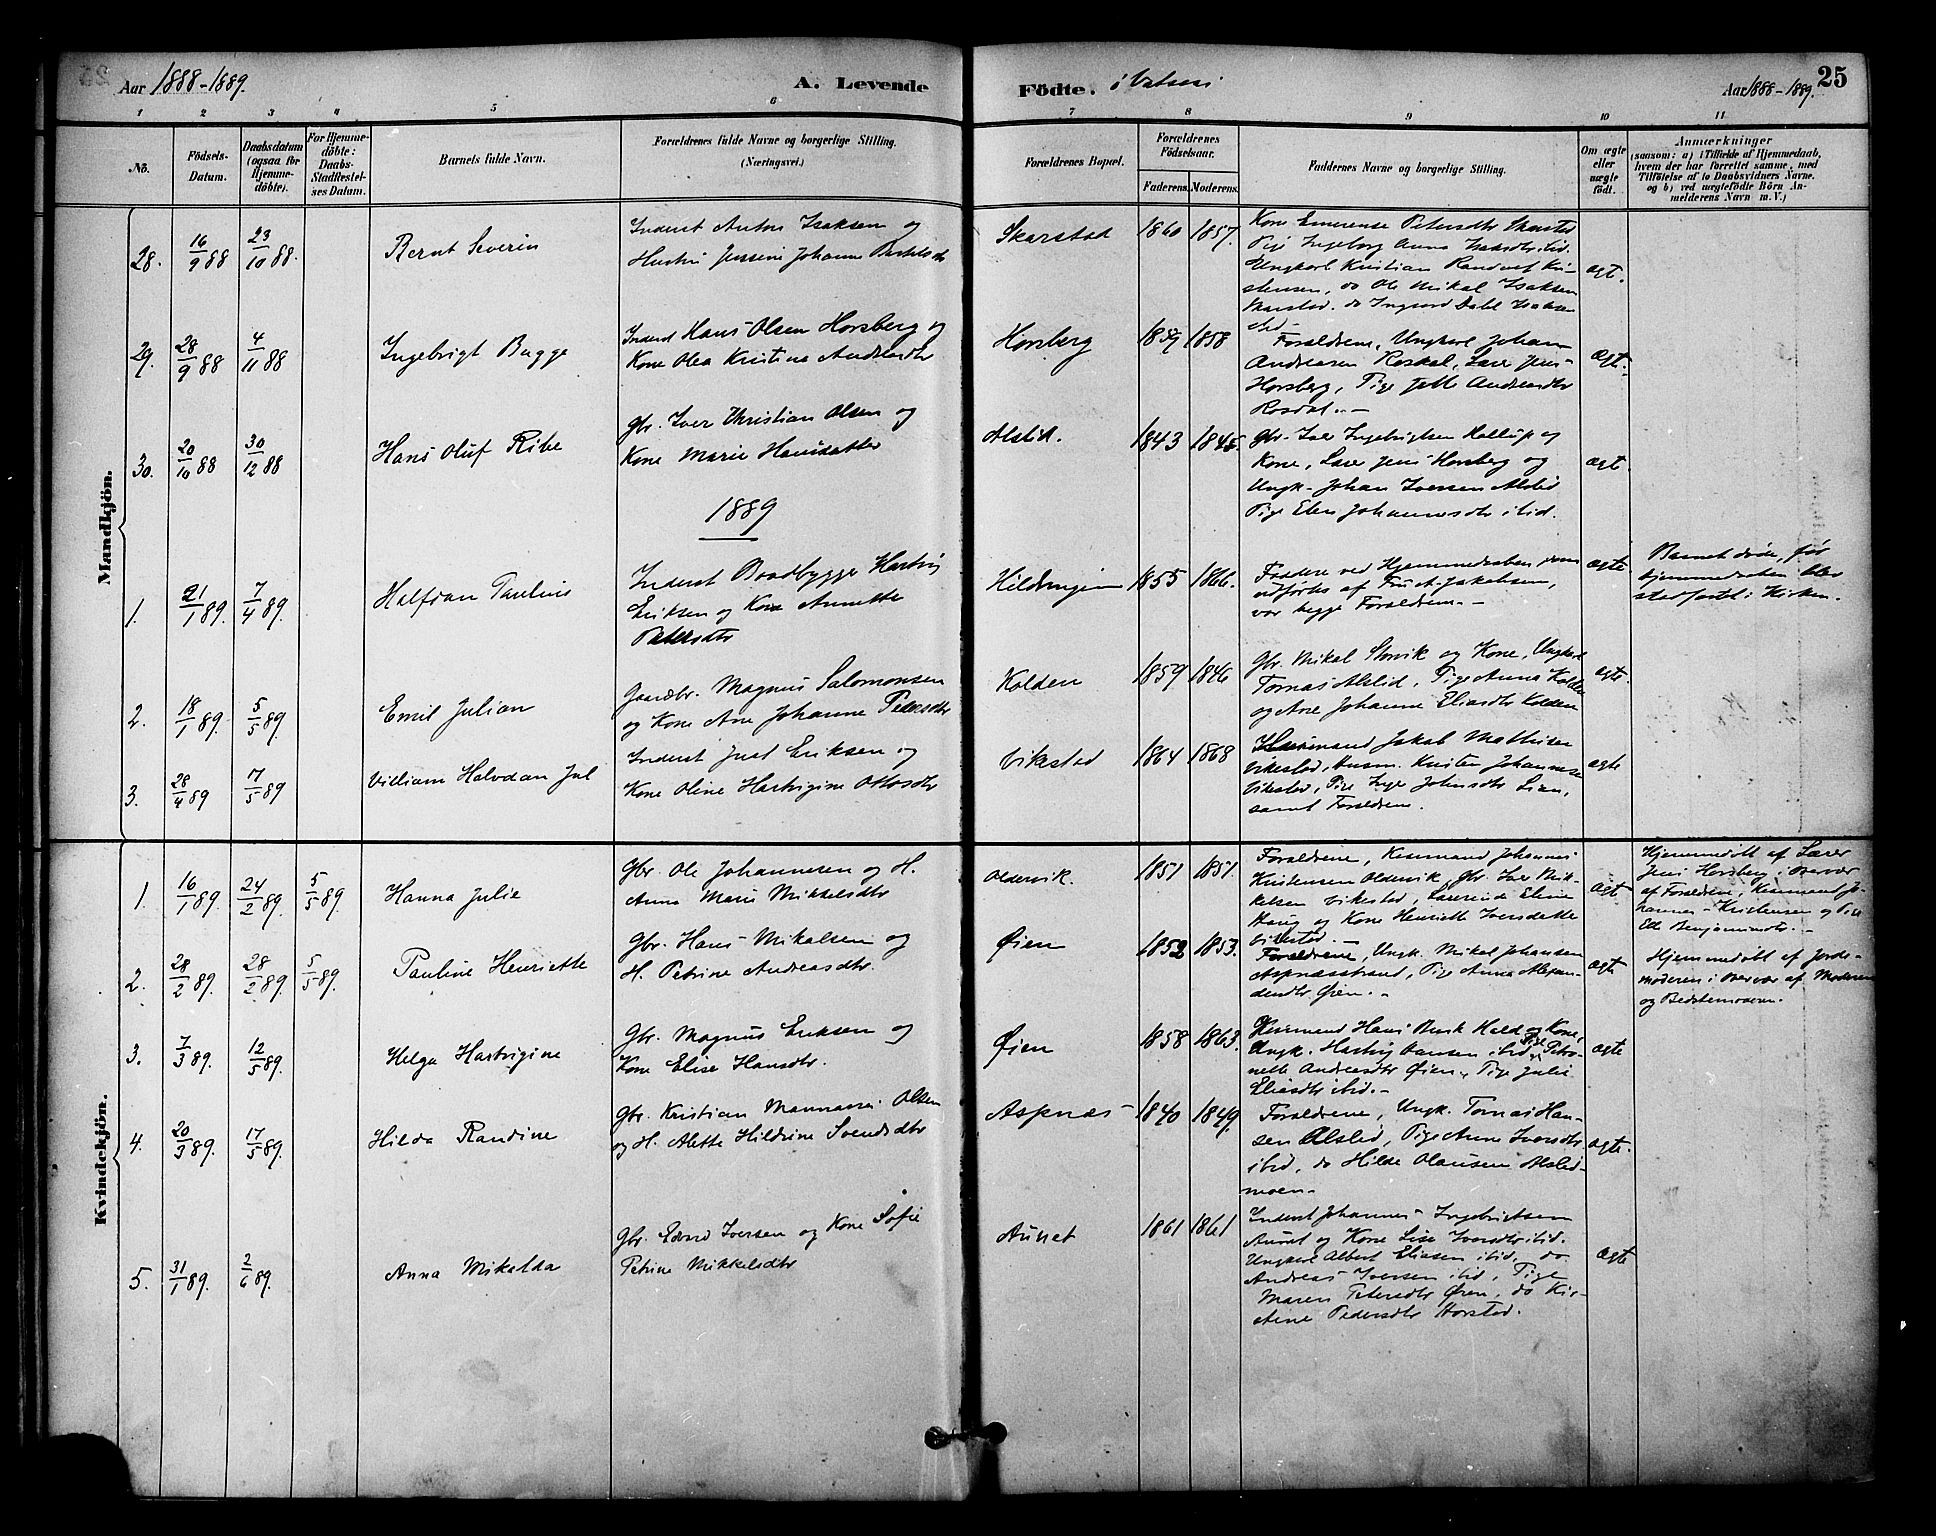 Aar 1888-1889.
A. Levende
Födte. i
Aar 1888-1889.
25
1 2 3 4 5 6 7 8 9 10 11
No.
Födsels-
Datum.
Daabsdatum
(ogsaa for
Hjemme-
döbte).
For Hjemme-
döbte:
Daabs-
Stadfæstel-
ses Datum.
Barnets fulde Navn.
Forældrenes fulde Navne og borgerlige Stilling.
(Næringsvei.)
Forældrenes Bopæl.
Forældrenes
Födselsaar.
Faderens. Moderens.
Faddernes Navne og borgerlige Stilling.
Om ægte
eller
uægte
födt.
Anmærkninger
(saasom: a) i Tilfælde af Hjemmedaab,
hvem der har forrettet samme, med
Tilföielse af to Daabsvidners Navne,
og b) ved uægtefödte Börn An-
melderens Navn m. V.)
Mandkjön.
28. 16/9 88 23/10 88. Bernt Severin
Inderst Anton Isaksen og
Hustru Jensine Johanna
Skarstad 1860 1857.
Kone Emerense Petersdtr Skarstad
Pige Ingeborg Anna Isaksdtr ibid.
Ungkarl Kristian
stensen, do Ole Mikal Isaksen
Skarstad. do Dahl Isaksen
ibid
ægt.
29. 28/9 88 4/11 88 Ingebrigt Bugge
Inderst Hans Olsen Horsberg og
Kone Olea Kristina Andreasdtr
Horsberg 1858
Forældrene, Ungkarl Johan
Andreasen Rosdal, Lærer Jens
Horsberg, Pige Jette Andreasdtr
Rosdal. -
ægt.
30. 20/10 88 30/12 88 Hans Oluf Ribe
Gbr. Iver Christian Olsen og
Kone Marie Hansdatter
Alstid. 1843 1845.
Gbr. Iver Ingebrigtsen og
Kone, Lærer Jens Horsberg og
Ungk. Johan Iversen Alslid
Pige Elen Johannesdtr ibid.
ægt
1889
1. 21/1 89. 7/4 89. Halfdan Paulius
Inderst Baadbygge Hartvig
Eriksen og Kone Annette
Petersdtr
Hildringen 1855 1866.
Faddere ved Hjemmedaaben, som
udførtes af Jakobsen,
var begge Forældrene. -
ægte
Barnet døde, før
hjemmedaaben blev
stadfæstet i Kirken.
2. 18/1 89. 5/5 89. Emil Julian
Gaardbr. Magnus Salomonsen
og Kone Ane Johanna Petersdtr
Kolden 1859 1846
Gbr. Mikal Storvik og Kone, Ungkarl
Tomas Alslid, Pige Anna Kolden
og Ane Johanna Eliasdtr Kolden
ægte.
3. 28/4 89 17/5 89 Villiam Halvdan Jul
Inderst Just Eriksen og
Kone Oline Hartvigine Ottosdtr
Vikestad 1864 1868
Husmand Jakob Mathisen
Vikestad, Husm. Kristen Johannesen
Vikestad, Pige Inge Johnsdtr Lien,
samt Forældrene.
ægte
Kvindekjön.
1. 16/1 89. 24/2 89. 5/5 89. Hanna Julie
Gbr. Ole Johannesen og H.
Anna Marie Mikkelsdtr
Oldervik. 1851 1851.
Forældrene, Johannes
Kristensen Oldervik, Gbr. Iver Mik-
kelsen Vikestad, Lærerinde Eline
Haug og Kone Henriette Iversdatter
Vikestad. -
ægt
Hjemmedøbt af Lærer
Jens Horsberg i Overvær
af Forældrene, Jo-
hannes Kristensen og Pige
Benjaminsdtr. -
2. 28/2 89. 28/2 89. 5/5 89. Pauline Henriette
Gbr. Hans Mikalsen og
H. Petrine Andreasdtr.
Øien 1852 1853.
Forældrene, Ungk. Mikal Johansen
Aspnæsstrand, Pige Anna
Øien. -
ægte
Hjemmedøbt af Jorde-
moderen i Overvær af Moderen
og Bedstemoderen.
3. 7/3 89. 12/5 89. Helga Hartvigine
Gbr. Magnus Eriksen og
Kone Elise Hansdtr.
Øien 1858 1863.
Hans og Kone,
Ungk. Hartvig Hansen ibid, Pige Petro-
nelle Andreasdtr Øien, Pige Julie
Eliasdtr ibid. -
ægte
4. 20/3 89. 17/5 89. Hilda Randine
Gbr. Kristian Olsen
og H. Alette Hildrine Svendsdtr
Aspnæs 1840 1849.
Forældrene, Ungk. Tomas Han-
sen Alslid, Pige Anne Iversdtr
ibid, do Hilde Olausen Alslid-
moen. -
ægte.
5. 31/1 89. 2/6 89. Anna Mikalda
Gbr. Edvard Iversen og Kone Sofie
Petrine Mikkelsdtr
Aunet 1861 1861
Inderst Johannes Ingebrigtsen
Aunet og Kone Lise Iversdtr ibid.
Ungkarl Albert Eliasen ibid, do
Andreas Iversen ibid, Pige
Maren Petersdtr Øien, do Kir-
stine Pedersdtr Horstad.
ægte